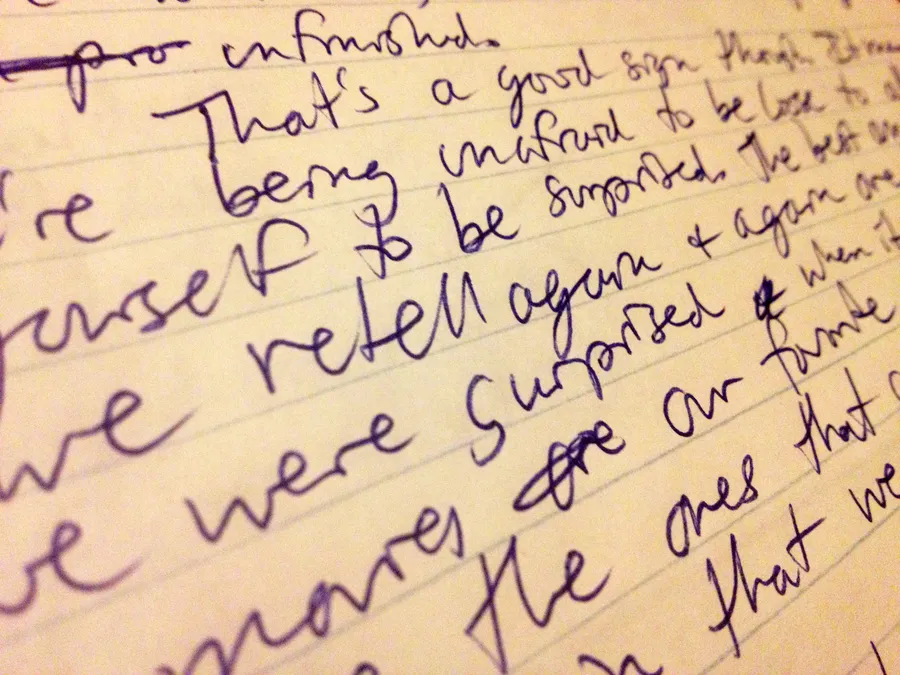 pro unfinished.
That's a good sign though
're being unafraid to be lose to
yourself to be surprised. The best
we retell again & again are
we were surprised & when it
movies are our favorite
the ones that
that we